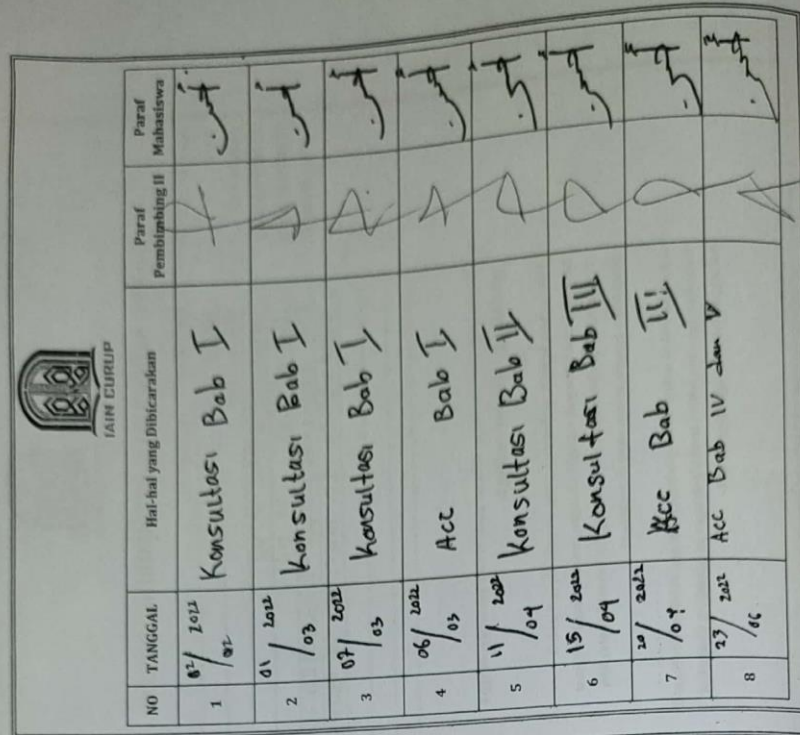 IAIN CURUP
NO TANGGAL Hal-hal yang Dibicarakan Paraf Pembimbing II Paraf Mahasiswa
1 02/02 2022 Konsultasi Bab I
2 01/03 2022 Konsultasi Bab I
3 07/03 2022 Konsultasi Bab I
4 06/03 2022 Acc Bab I
5 11/04 2022 Konsultasi Bab II
6 15/04 2022 Konsultasi Bab III
7 20/04 2022 Acc Bab III
8 23/06 2022 Acc Bab IV dan V